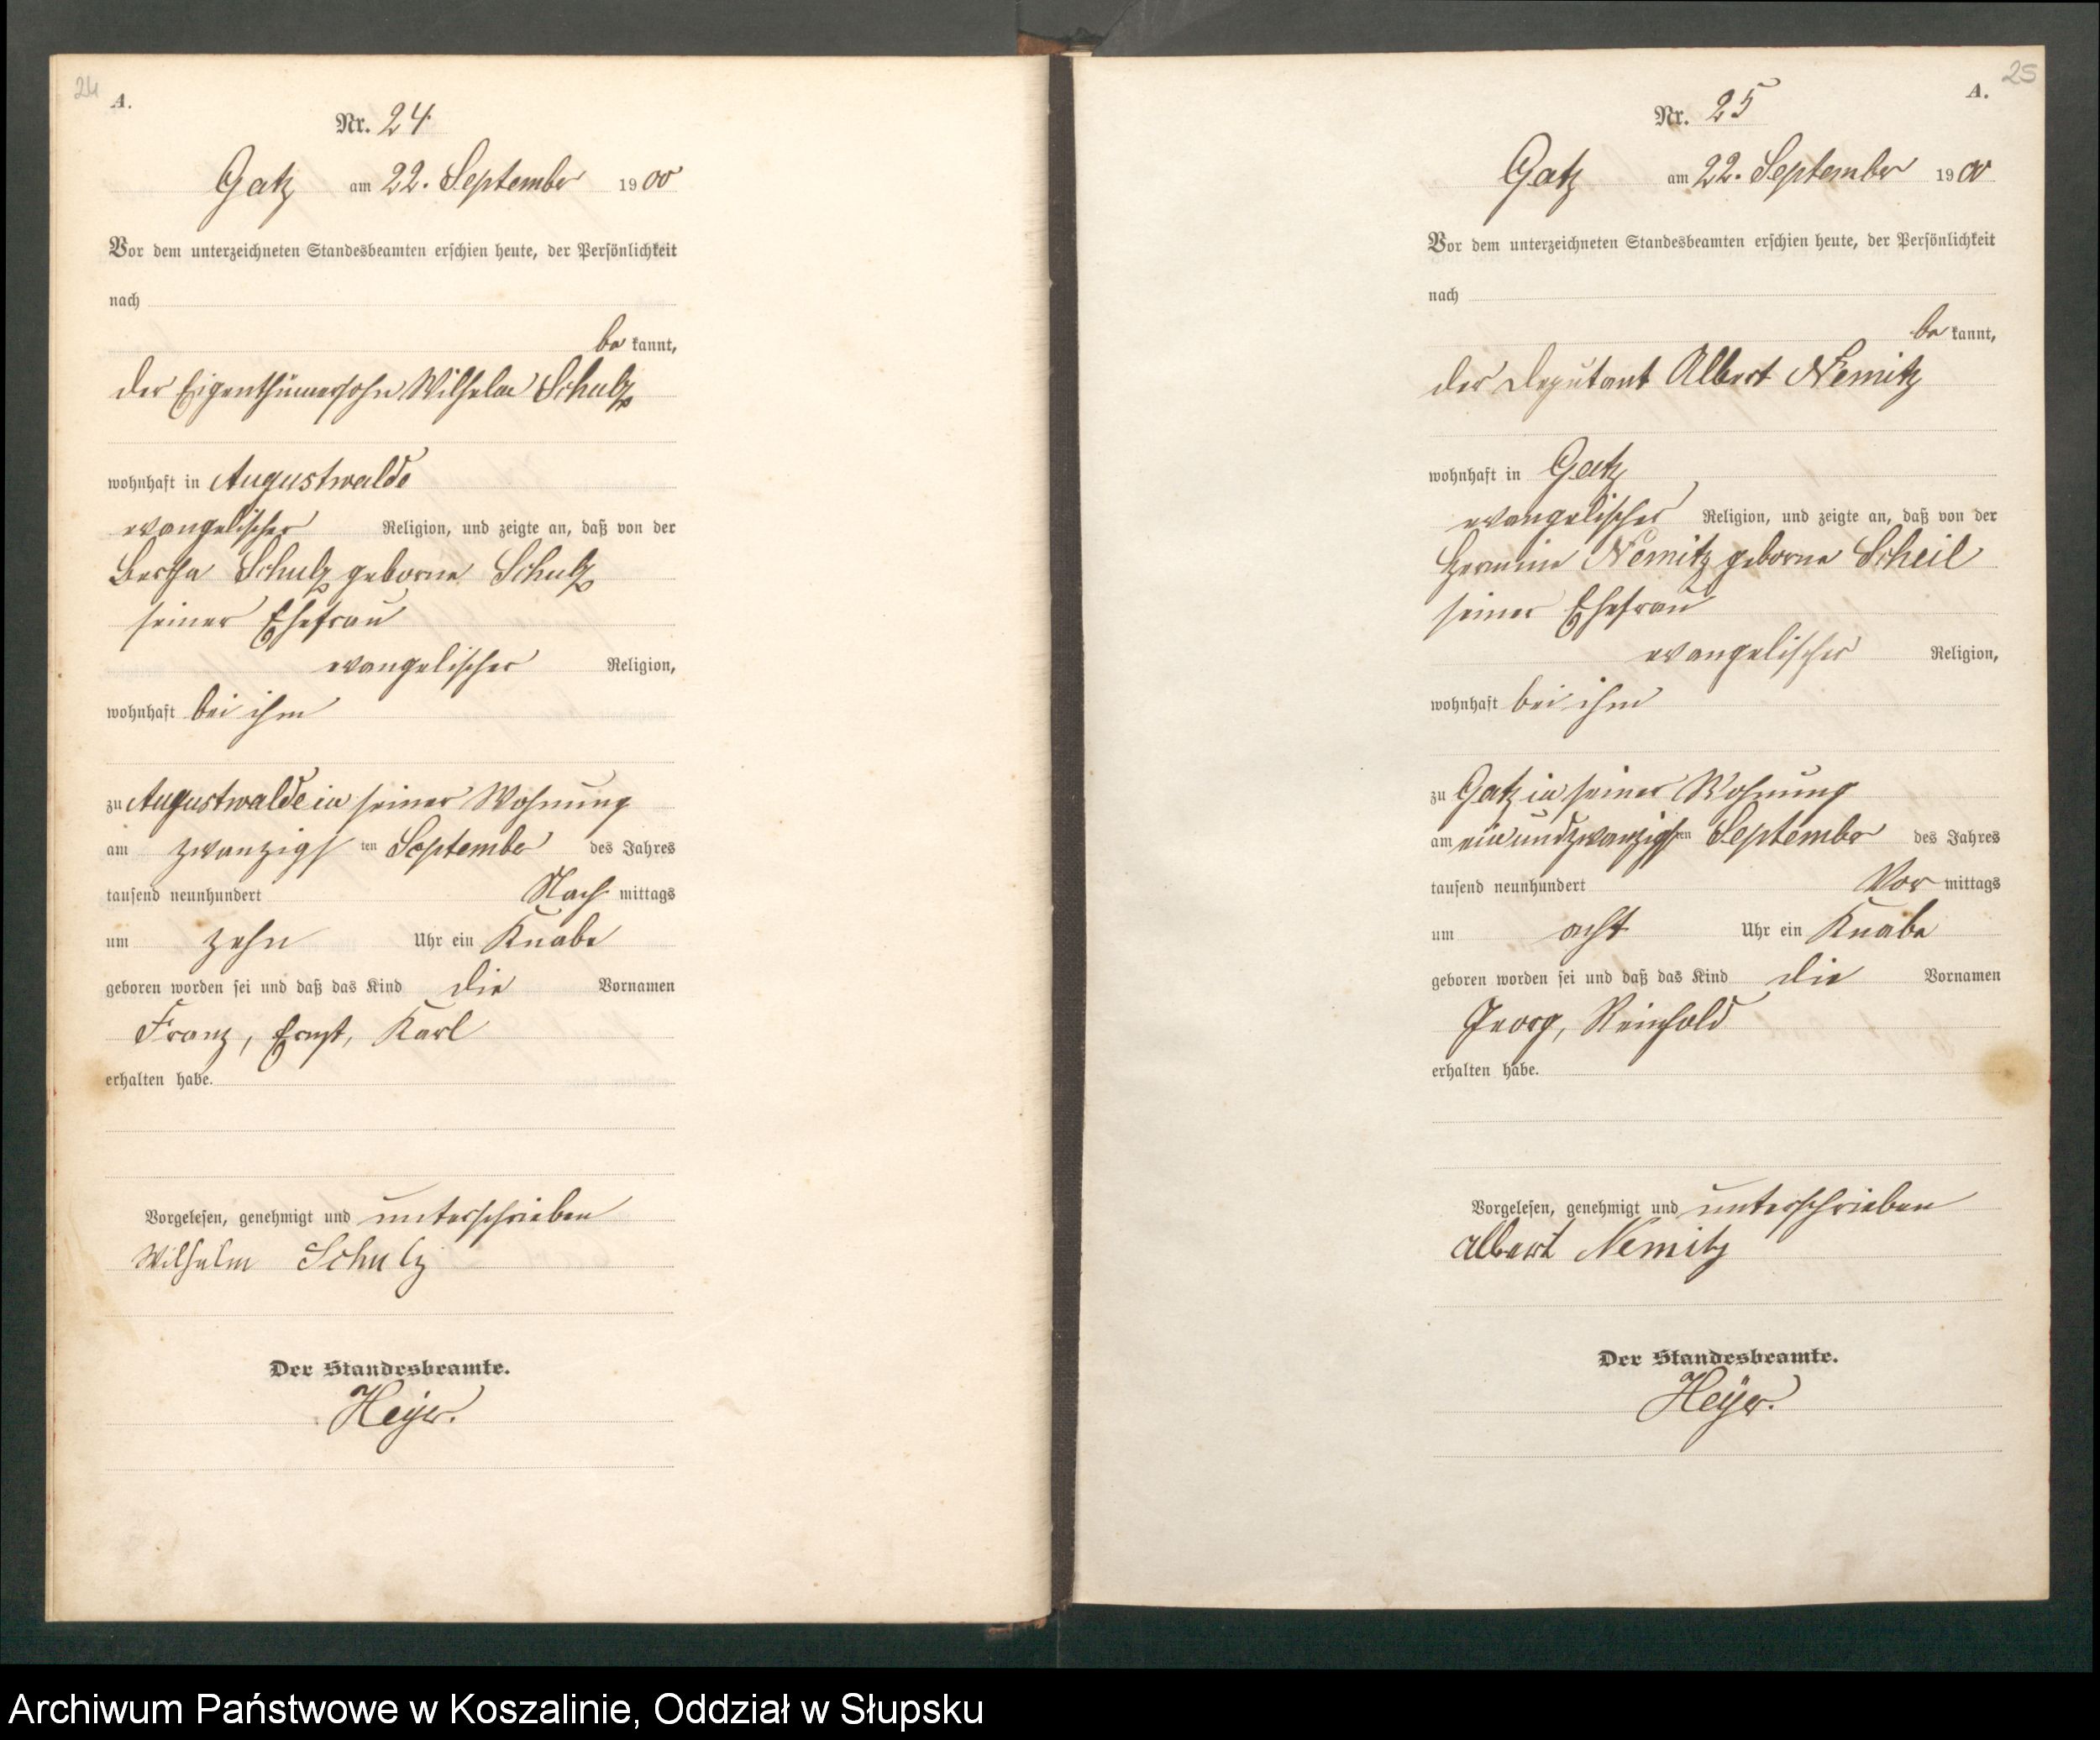 24
A.
Nr. 24
Gatz am 22. September 1900
Vor dem unterzeichneten Standesbeamten erschien heute, der Persönlichkeit
nach
be kannt,
der Eigenthümersohn Wilhelm Schulz
wohnhaft in Augustwalde
evangelischer Religion, und zeigte an, daß von der
Bertha Schulz geborne Schulz
seiner Ehefrau
evangelischer Religion,
wohnhaft bei ihm
zu Augustwalde in seiner Wohnung
am zwanzigsten September des Jahres
tausend neunhundert Nach mittags
um zehn Uhr ein Knabe
geboren worden sei und daß das Kind die Vornamen
Franz, Ernst, Karl
erhalten habe.
Vorgelesen, genehmigt und unterschrieben
Wilhelm Schulz
Der Standesbeamte.
Heyer.
25
A.
Nr. 25
Gatz am 22. September 1900
Vor dem unterzeichneten Standesbeamten erschien heute, der Persönlichkeit
nach
be kannt,
der Deputant Albert Nemitz
wohnhaft in Gatz
evangelischer Religion, und zeigte an, daß von der
Hermine Nemitz geborne Scheil
seiner Ehefrau
evangelischer Religion,
wohnhaft bei ihm
zu Gatz in seiner Wohnung
am einundzwanzigsten September des Jahres
tausend neunhundert Vor mittags
um acht Uhr ein Knabe
geboren worden sei und daß das Kind die Vornamen
Georg, Reinhold
erhalten habe.
Vorgelesen, genehmigt und unterschrieben
Albert Nemitz
Der Standesbeamte.
Heÿer.
Archiwum Państwowe w Koszalinie, Oddział w Słupsku